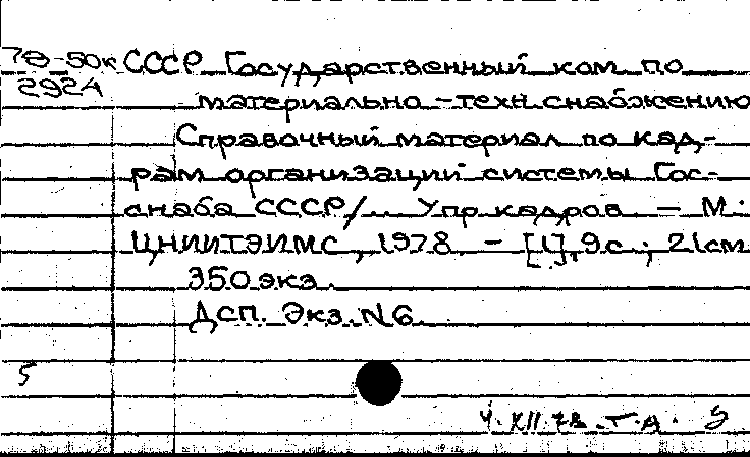 78-50к СССР Государственный ком. по
2924 материально-техн. снабжению
Справочный материал по кад-
рам организаций системы Гос-
снаба СССР/... Упр. кадров. — М.:
ЦНИИТЭИМС, 1978. - [1], 9 с.; 21 см
350 экз.
ДСП. Экз. N 6.
5
4.XII.78. Т.А.